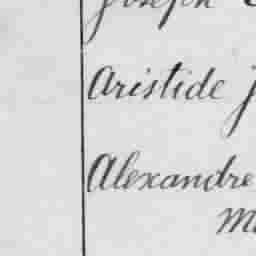 Joseph
Aristide
Alexandre